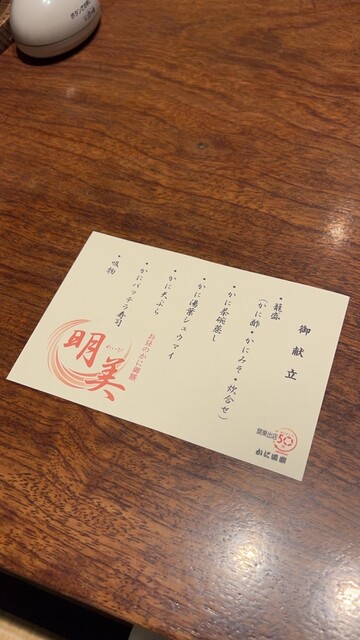 御献立
・籠盛
(かに酢・かにみそ・炊合せ)
・かに茶碗蒸し
・かに湯葉シュウマイ
・かに天ぷら
・かにバッテラ寿司
・吸物
お昼のかに御膳
明美
めいび
関東出店
50
かに道楽